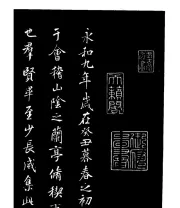 永和九年歲在癸丑暮春之初
于會稽山陰之蘭亭脩禊事
也羣賢畢至少長咸集此